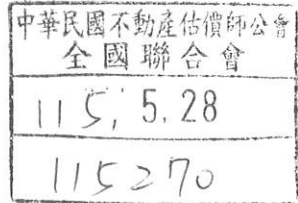 中華民國不動產估價師公會
全國聯合會
115, 5.28
115270